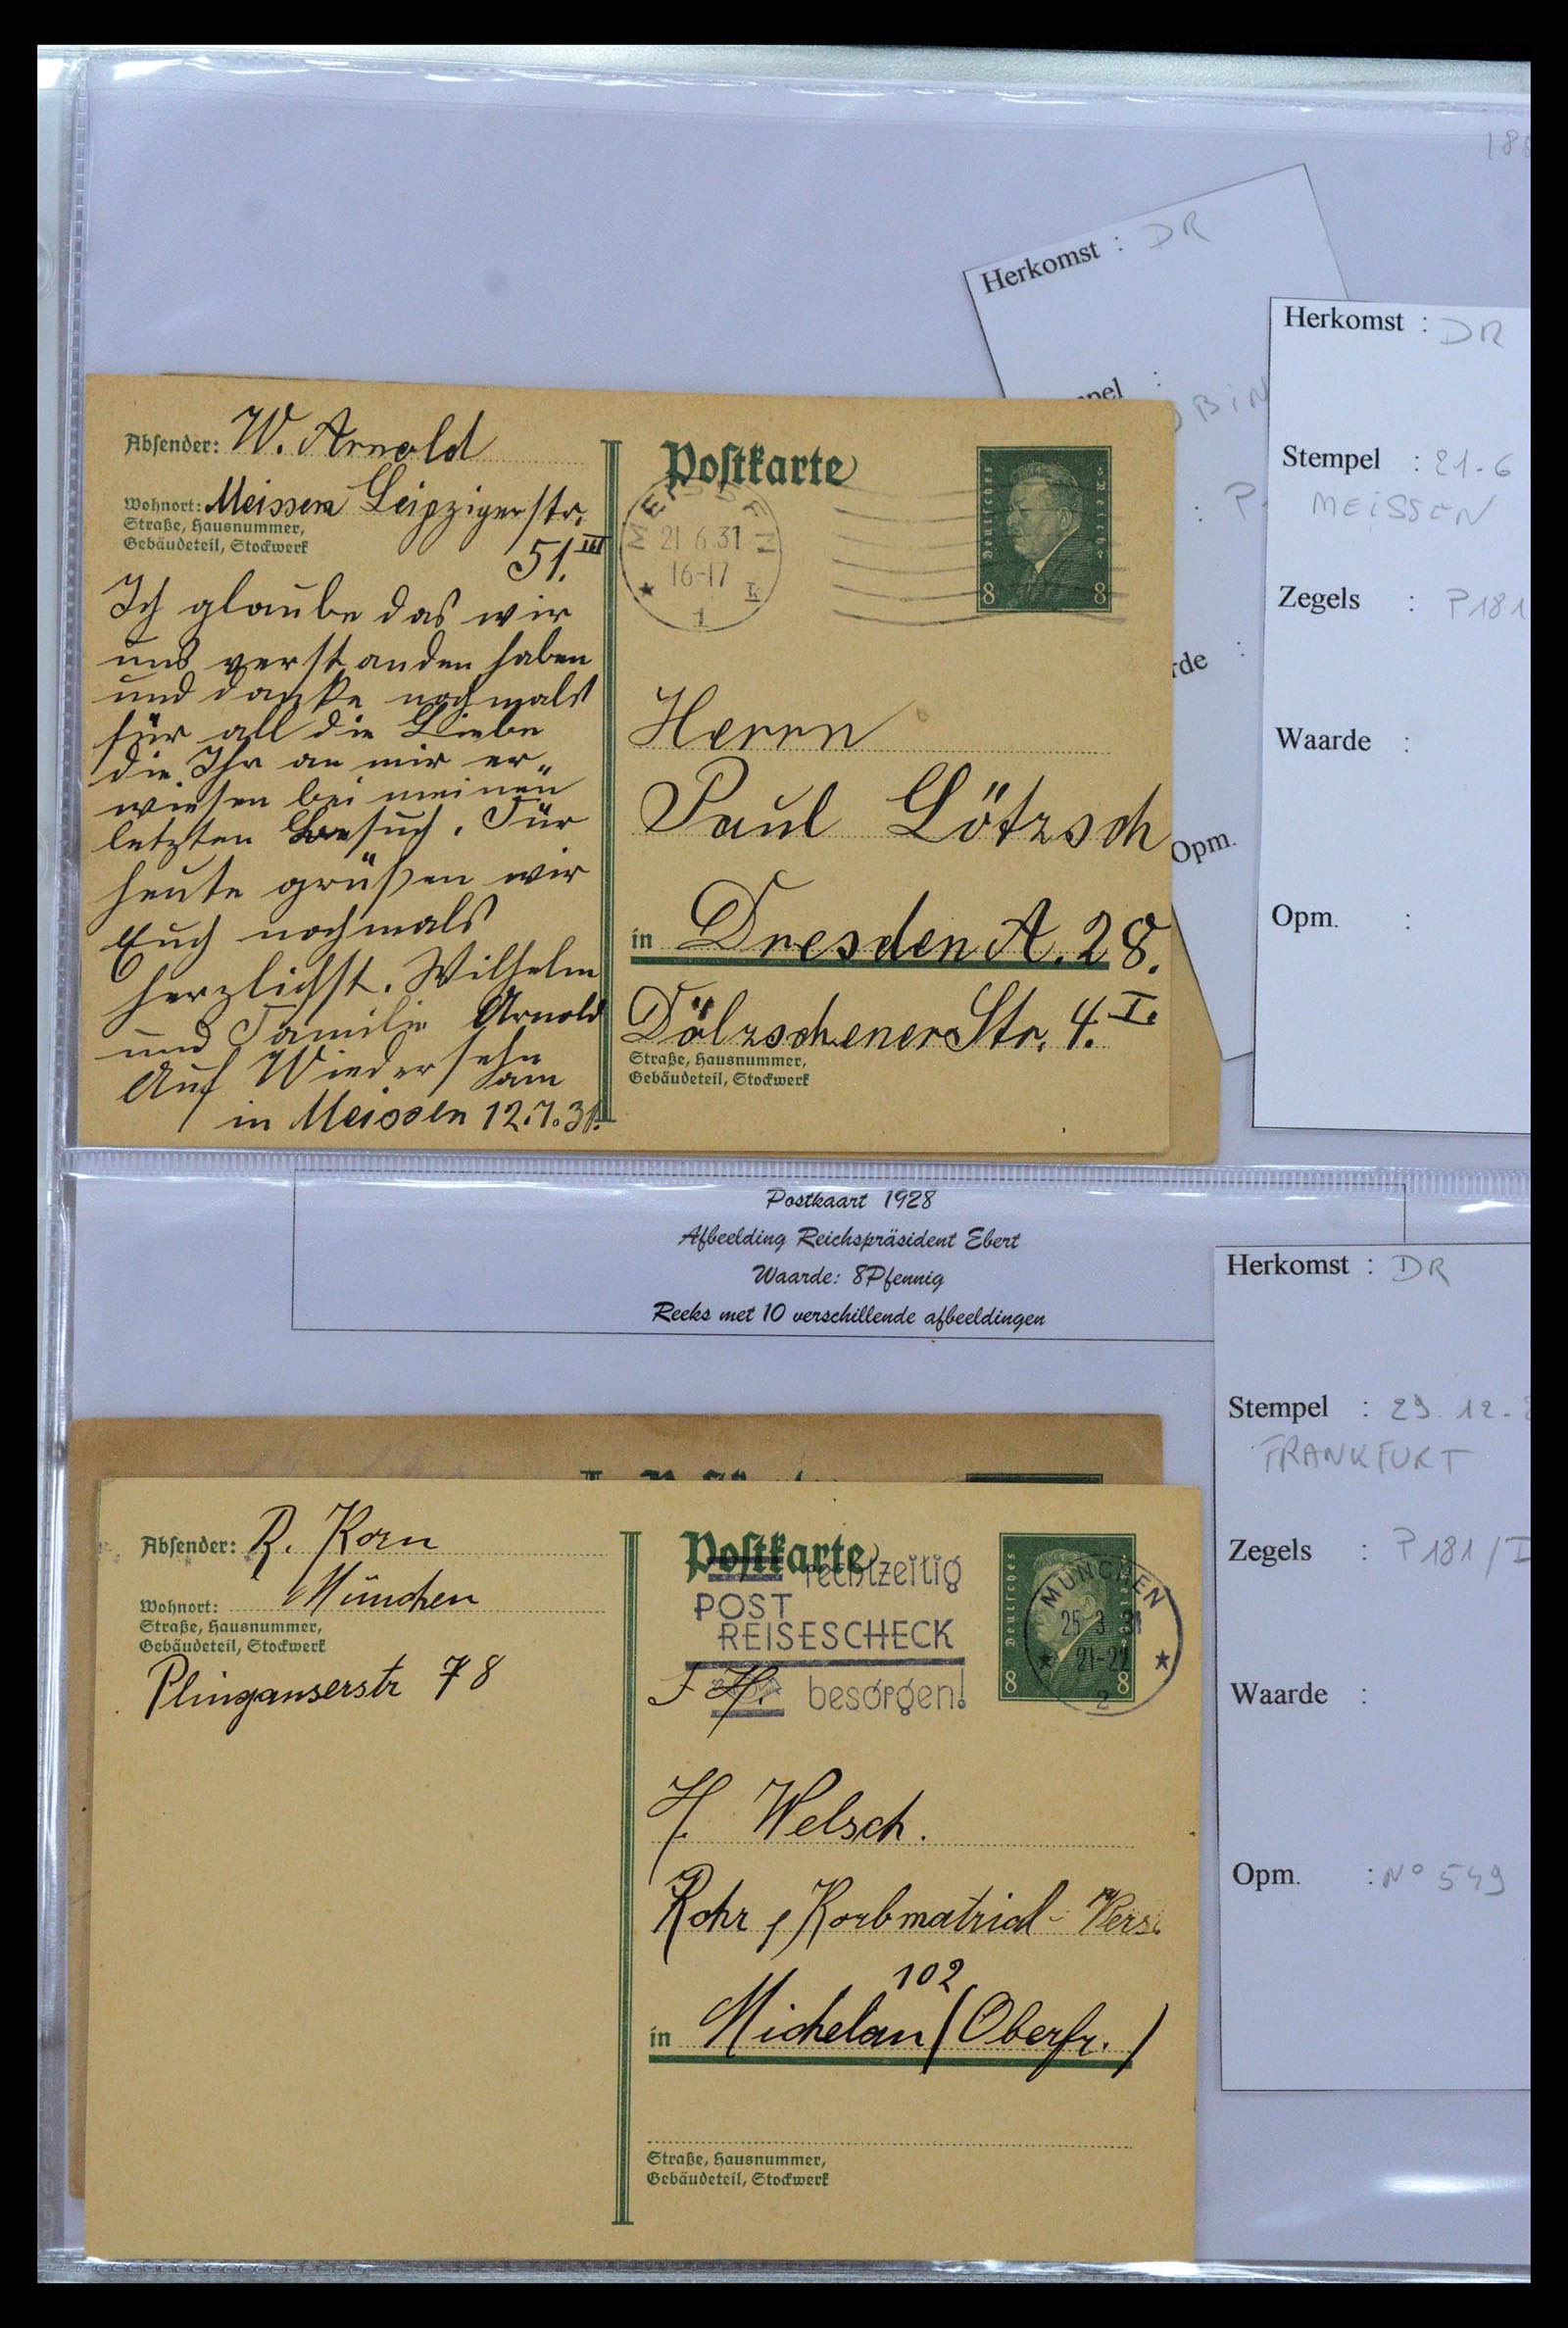 Herkomst : DR
Herkomst : DR
Stempel : 21-6
MEISSEN
Zegels : P181
Waarde :
Opm. :
rde :
Opm.
Absender: W. Arnold
Wohnort: Meissen Leipzigerstr.
Straße, Hausnummer,
Gebäudeteil, Stockwerk
51. III
Ich glaube das wir
uns verstanden haben
und danke nochmals
für all die Liebe
die Ihr an mir er„
wiesen bei meinen
letzten Besuch. Für
heute grüßen wir
Euch nochmals
herzlichst. Wilhelm
und Familie Arnold
Auf Wiedersehn
am
in Meissen 12.7.31.
Postkarte
MEISSEN
21.6.31
16-17
1
Deutsches Reich
8 8
Herrn
Paul Lötzsch
in Dresden A. 28.
Dölzschener Str. 4. I.
Straße, Hausnummer,
Gebäudeteil, Stockwerk
Postkaart 1928
Afbeelding Reichspräsident Ebert
Waarde: 8Pfennig
Reeks met 10 verschillende afbeeldingen
Herkomst : DR
Stempel : 29.12.
FRANKFURT
Zegels : P181/I
Waarde :
Opm. : N° 549
Absender: R. Korn
Wohnort: München
Straße, Hausnummer,
Gebäudeteil, Stockwerk
Plinganserstr 78
Postkarte
rechtzeitig
POST
REISESCHECK
besorgen!
MÜNCHEN
25.3.31
21-22
2
Deutsches
8 8
H. Welsch.
Rohr, Korbmatrial- Vers.
102
in Michelau (Oberfr.)
Straße, Hausnummer,
Gebäudeteil, Stockwerk